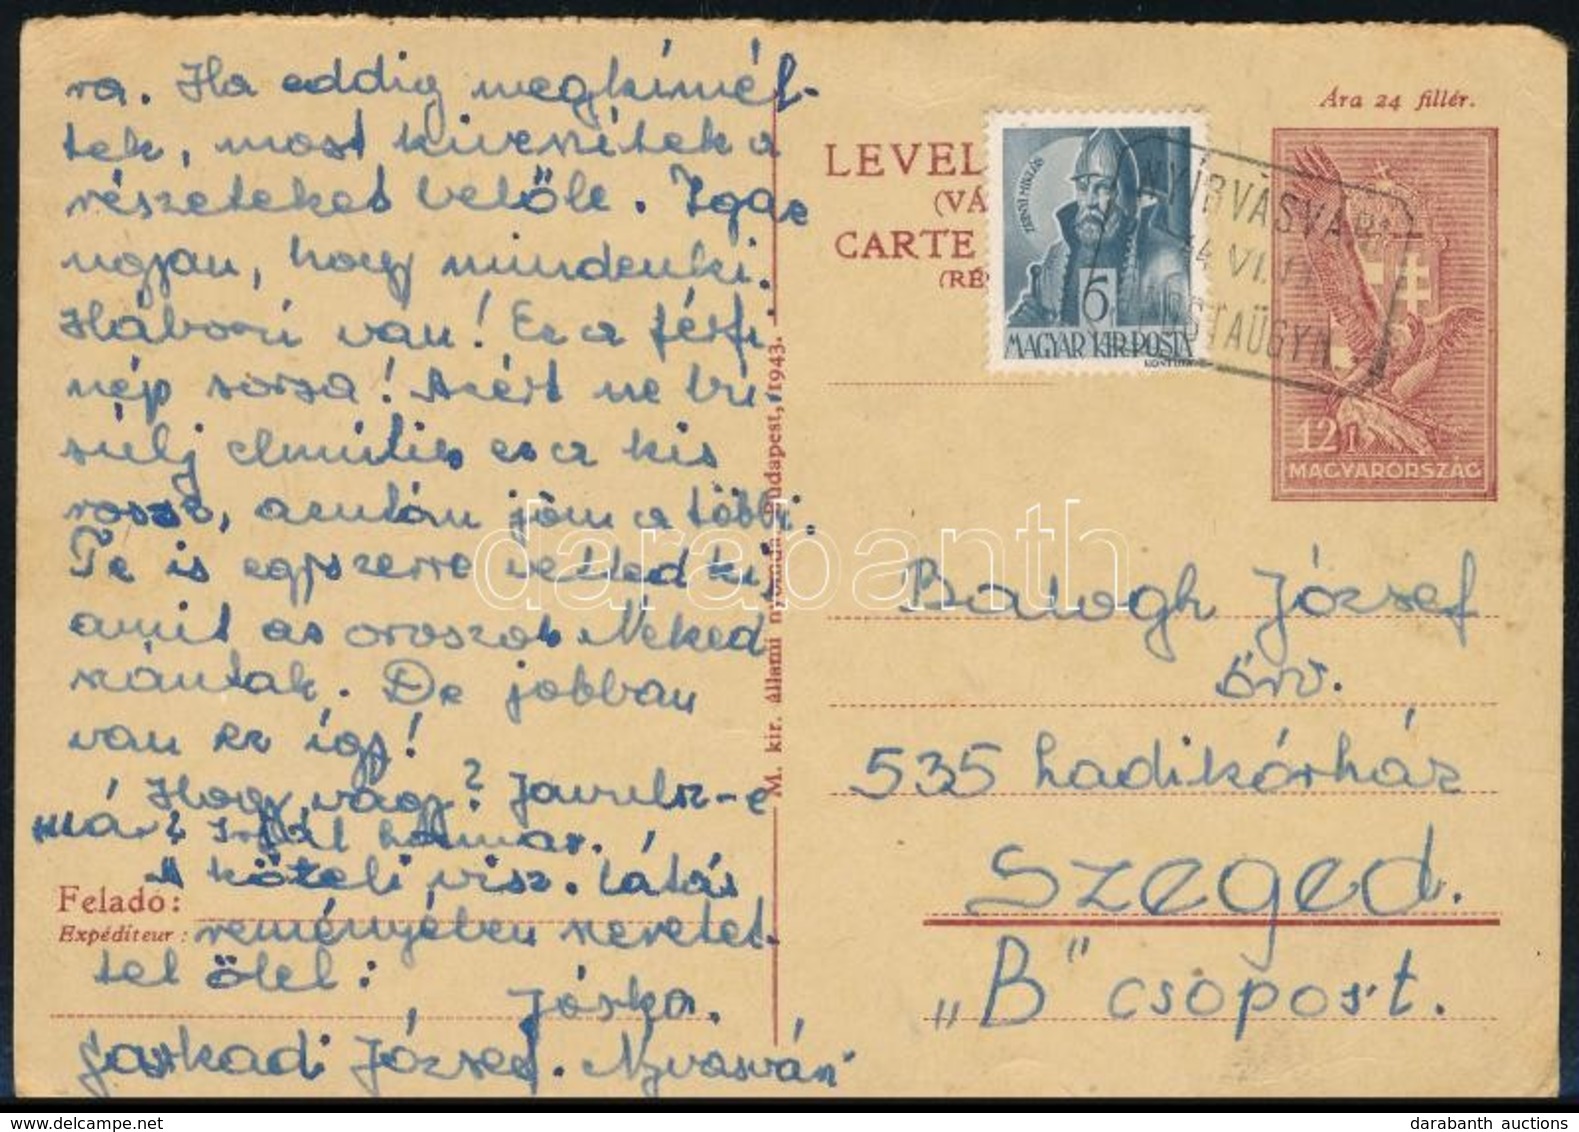 ra. Ha eddig megkímél-
tek, most kiveszitek a
részeteket belőle. Igaz
ugyan, hogy mindenki.
Háború van! Ez a férfi
nép sorsa! Azért ne bú-
sulj elmúlik ez a kis
rossz, azután jön a többi.
Te is egyszerre vetted ki,
amit az oroszok Neked
szántak. De jobban
van ez így!
Hogy vagy? Javulsz-e
már? Írjál hamar.
A közeli visz. látás
reményében szeretet-
tel ölel:
Jóska.
Gaskadi József. Nyvasvári
Feladó:
Expéditeur:
M. kir. állami nyomda, Budapest, 1943.
LEVEL
(VÁ
CARTE
(RÉ
ZRINYI MIKLÓS
6
MAGYAR KIR. POSTA
NYÍRVASVÁRI
44 VI.
POSTAÜGYN.
Ára 24 fillér.
12 f
MAGYARORSZÁG
Balogh József
örv.
535 hadikórház
Szeged.
„B" csoport.
darabanth
darabanth auctions